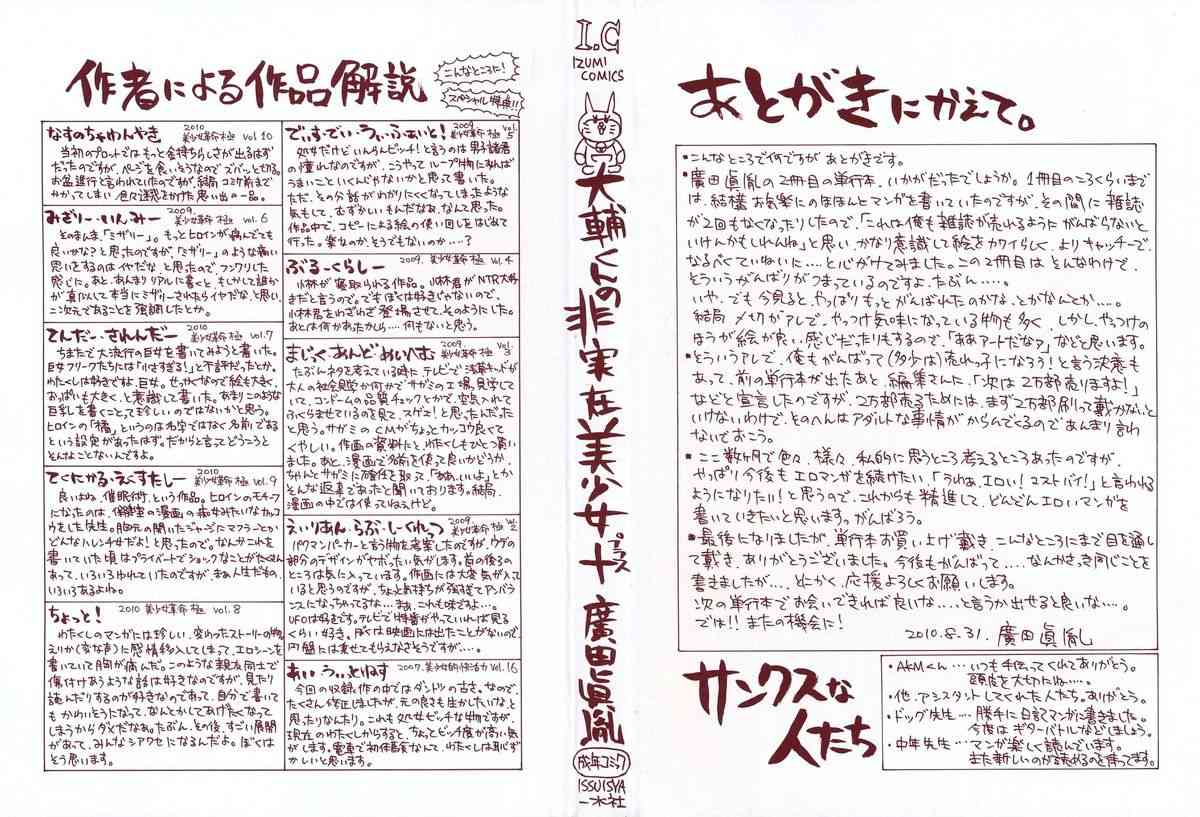 作者による作品解説
こんなところに!
スペシャル特典!!
なすのちゃわんやき 2010 美少女革命 極 vol.10
当初のプロットではもっと金持ちらしさが出るはず
だったのですが、ページを食いそうなのでズバッと切る。
お盆進行と言われていたのですが、結局コミケ前まで
かかってしまい色々迷惑をかけた思い出の一品。
みざりー・いんみー 2009 美少女革命 極 vol.6
そのまんま、「ミザリー」。もっとヒロインが病んでても
良いかな?と思ったのですが、「ミザリー」のような痛い
思いをするのはイヤだなと思ったので、フンワリした
感じに。あと、あんまりリアルに書くと、もしかして誰か
が真似して本当にミザリーされたらイヤだな、と思い、
二次元であることを強調したとか。
てんだー・されんだー 2010 美少女革命 極 vol.7
ちまたで大流行の巨女を書いてみようと書いた。
巨女フリークたちには「小さすぎる!」と不評だったとか。
わたくしは好きですよ、巨女。せっかくなので絵も大きく、
おっぱいも大きく、と意識して書いた。あまりこのような
巨乳を書くことって珍しいのではないかと思う。
ヒロインの「橘」というのは名字ではなく名前である
という設定があったはず。だからと言ってどうこうと
そんなことないんですよ。
てくにかる・えくすたしー 2010 美少女革命 極 vol.9
良いよね、催眠術、という作品。ヒロインのモチーフ
になったのは、保健室の漫画の痴女みたいなカッコ
ウをした先生。胸元の開いたジャージにマフラーとか
どんなハレンチ女だよ!と思ったので。なんかこれを
書いていた頃はプライベートでショックなことがたくさん
あって、いろいろゆれていたのですが、まぁ人生だもの、
いろいろあるよね。
ちょっと! 2010 美少女革命 極 vol.8
わたくしのマンガには珍しい、変わったストーリーの物。
えりか(変な声)に感情移入してしまって、エロシーンを
書いていて胸が痛んだ。このような親友同士で
傷付けあうような話は好きなのですが、見たり
読んだりするのが好きなのであって、自分で書いて
もかわいそうになって、なんとかしてあげたくなって
しまうからダメだなぁ。たぶん、その後、すごい展開
があって、みんなシアワセになるんだよ。ぼくは
そう思います。
でぃす・でい・うぃ・ふぁいと! 2009 美少女革命 極 vol.5
処女だけどいんらんビッチ!と言うのは男子諸君
の憧れなのですが、こうやってループ物にすれば
うまいこといくんじゃないかと思って書いた。
ただ、その分話がわかりにくくなってしまったような
気もして、むずかしいもんだなぁ、なんて思った。
作品中で、コピーによる絵の使い回しをはじめて
作った。楽なのか、そうでもないのか……?
ぶるー・くらしー 2009. 美少女革命 極 vol.4
小林が寝取られる作品。小林君がNTR大好
きだと言うので。でもぼくは好きじゃないので、
小林君をわざわざ登場させて、そのようにした。
あとは何かあったかしら……何もないと思う。
まじっく・あんど・めいへむ 2009. 美少女革命 極 vol.3
たぶんネタを考えている時に、テレビで浅草キッドが
大人の社会見学か何かでサガミの工場、見学して
いて、コンドームの品質チェックとかで、空気入れて
ふくらませているのを見て、スゲェ!と思ったんだった
と思う。サガミのCMがちょっとカッコウ良くて
くやしい。作画の資料だと、わたくしもひとつ買い
ました。あと、漫画で名前を使って良いかどうか、
ちゃんとサガミに確認を取って、「ああ、いいよ」とか
そんな返事であったと聞いております。結局、
漫画の中では使っていねぇけど。
えいりあん・らぶ・しーくれっつ 2009. 美少女革命 極 vol.2
パクマンパーカーと言う物を考案したのですが、ウデの
部分のデザインがヤボったい気がします。首の後ろの
ところは気に入っています。作画には大変気が入って
いると思うのですが、ちょっと気持ちが強すぎてアンバラ
ンスになっちゃってるな……まぁ、これも味ですよ…。
UFOは好きです。テレビで特番がやっていれば見る
くらい好き。ぼくは映画には出たことがないので、
円盤には乗せてもらえなさそうですが……。
あい・うぃっとねす 2007. 美少女的快活力 vol.16
今回の収録作の中ではダントツの古さ。なので、
たくさん修正しましたが、元の良さも生かしたいな、と
思ったりなんたり。これも処女ビッチな物ですが、
現在のわたくしからすると、ちょっとビッチ度が高い気
がします。電車で初体験なんて、わたくしは恥ず
かしいと思います。
I.C
IZUMI COMICS
大輔くんの非実在美少女十プラス
廣田眞胤
成年コミック
ISSUISYA
一水社
あとがきにかえて。
・こんなところで何ですが、あとがきです。
・廣田眞胤の2冊目の単行本、いかがだったでしょうか。1冊目のころくらいまで
は、結構お気楽にのほほんとマンガを書いていたのですが、その間に雑誌
が2回もなくなったりしたので、「これは俺も雑誌が売れるようにがんばらないと
いけんかもしれんね」と思い、かなり意識して絵をカワイらしく、よりキャッチーで、
なるべくていねいに……と心がけてみました。この2冊目はそんなわけで、
そういうがんばりがつまっているのですよ、たぶん……。
いや、でも今見ると、やっぱりもっとがんばれたのかな、とかなんとか……。
結局〆切がアレで、やっつけ気味になっている物も多く、しかし、やっつけの
ほうが絵が良い感じだったりもするので、「ああアートだなァ」などと思います。
・とういうアレで、俺もがんばって(多少は)売れっ子になろう!と言う決意も
あって、前の単行本が出たあと、編集さんに、「次は2万部売りますよ!」
などと宣言したのですが、2万部売るためには、まず2万部刷って戴かないと
いけないわけで、そのへんはアダルトな事情がからんでくるのであんまり言わ
ないでおこう。
・ここ数ヶ月で色々、様々、私的に思うところ考えるところあったのですが、
やっぱり今後もエロマンガを続けたい、「うわぁ、エロい!マストバイ!」と言われる
ようになりたい!と思うので、これからも精進して、どんどんエロいマンガを
書いていきたいと思いますっ。がんばろう。
・最後になりましたが、単行本お買い上げ戴き、こんなところにまで目を通し
て戴き、ありがとうございました。今後もがんばって……なんかさっき同じことを
書きましたが……とにかく、応援よろしくお願いします。
次の単行本でお会いできれば良いな……と言うか出せると良いな…。
では!!またの機会に!
2010.8.31. 廣田眞胤
サンクスな人たち
・AKMくん…いつも手伝ってくれてありがとう。
頭皮を大切にね…。
・他、アシスタントしてくれた人たち。ありがとう。
・ドッグ先生…勝手に日記マンガに書きました。
今度はギターバトルなどしましょう。
・中年先生…マンガ楽しく読んでいます。
また新しいのが読めるのを待ってます。